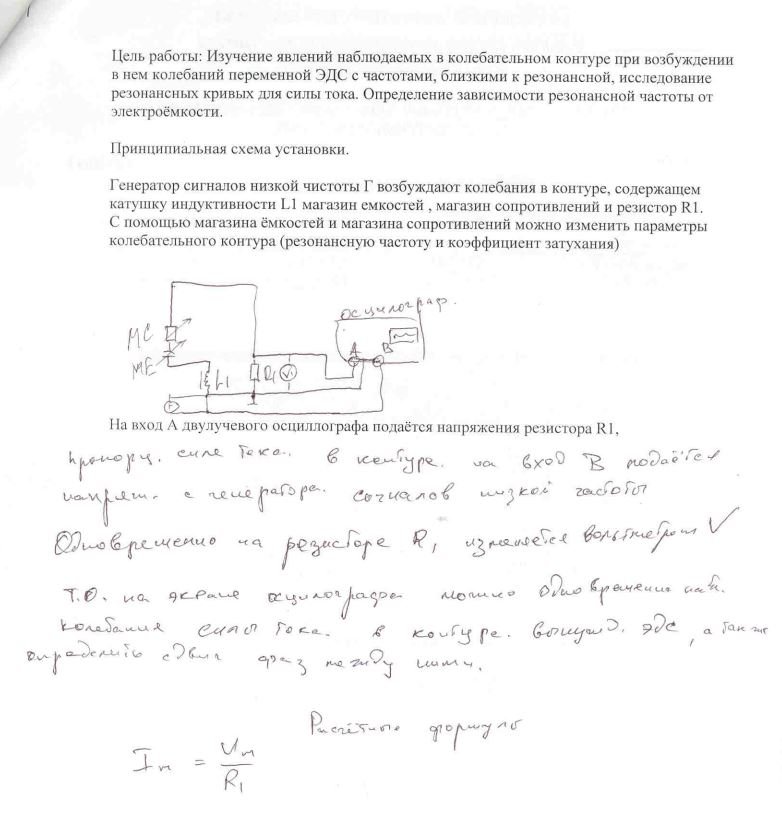 Цель работы: Изучение явлений наблюдаемых в колебательном контуре при возбуждении
в нем колебаний переменной ЭДС с частотами, близкими к резонансной, исследование
резонансных кривых для силы тока. Определение зависимости резонансной частоты от
электроёмкости.
Принципиальная схема установки.
Генератор сигналов низкой чистоты Г возбуждают колебания в контуре, содержащем
катушку индуктивности L1 магазин емкостей , магазин сопротивлений и резистор R1.
С помощью магазина ёмкостей и магазина сопротивлений можно изменить параметры
колебательного контура (резонансную частоту и коэффициент затухания)
осцилограф.
МС
A B
МЕ
L1 R1 V
Г
На вход А двулучевого осциллографа подаётся напряжения резистора R1,
пропорц. силе тока. в контуре. на вход В подаётся
напряж. с генератора. сигналов низкой частоты
Одновременно на резисторе R1 изменяется вольтметром V
Т.О. на экране осцилографа можно одновременно наб.
колебания силы тока. в контуре. вынужд. ЭДС, а так же
определить сдвиг фаз между ними.
Расчётные формулы
Im = Um / R1